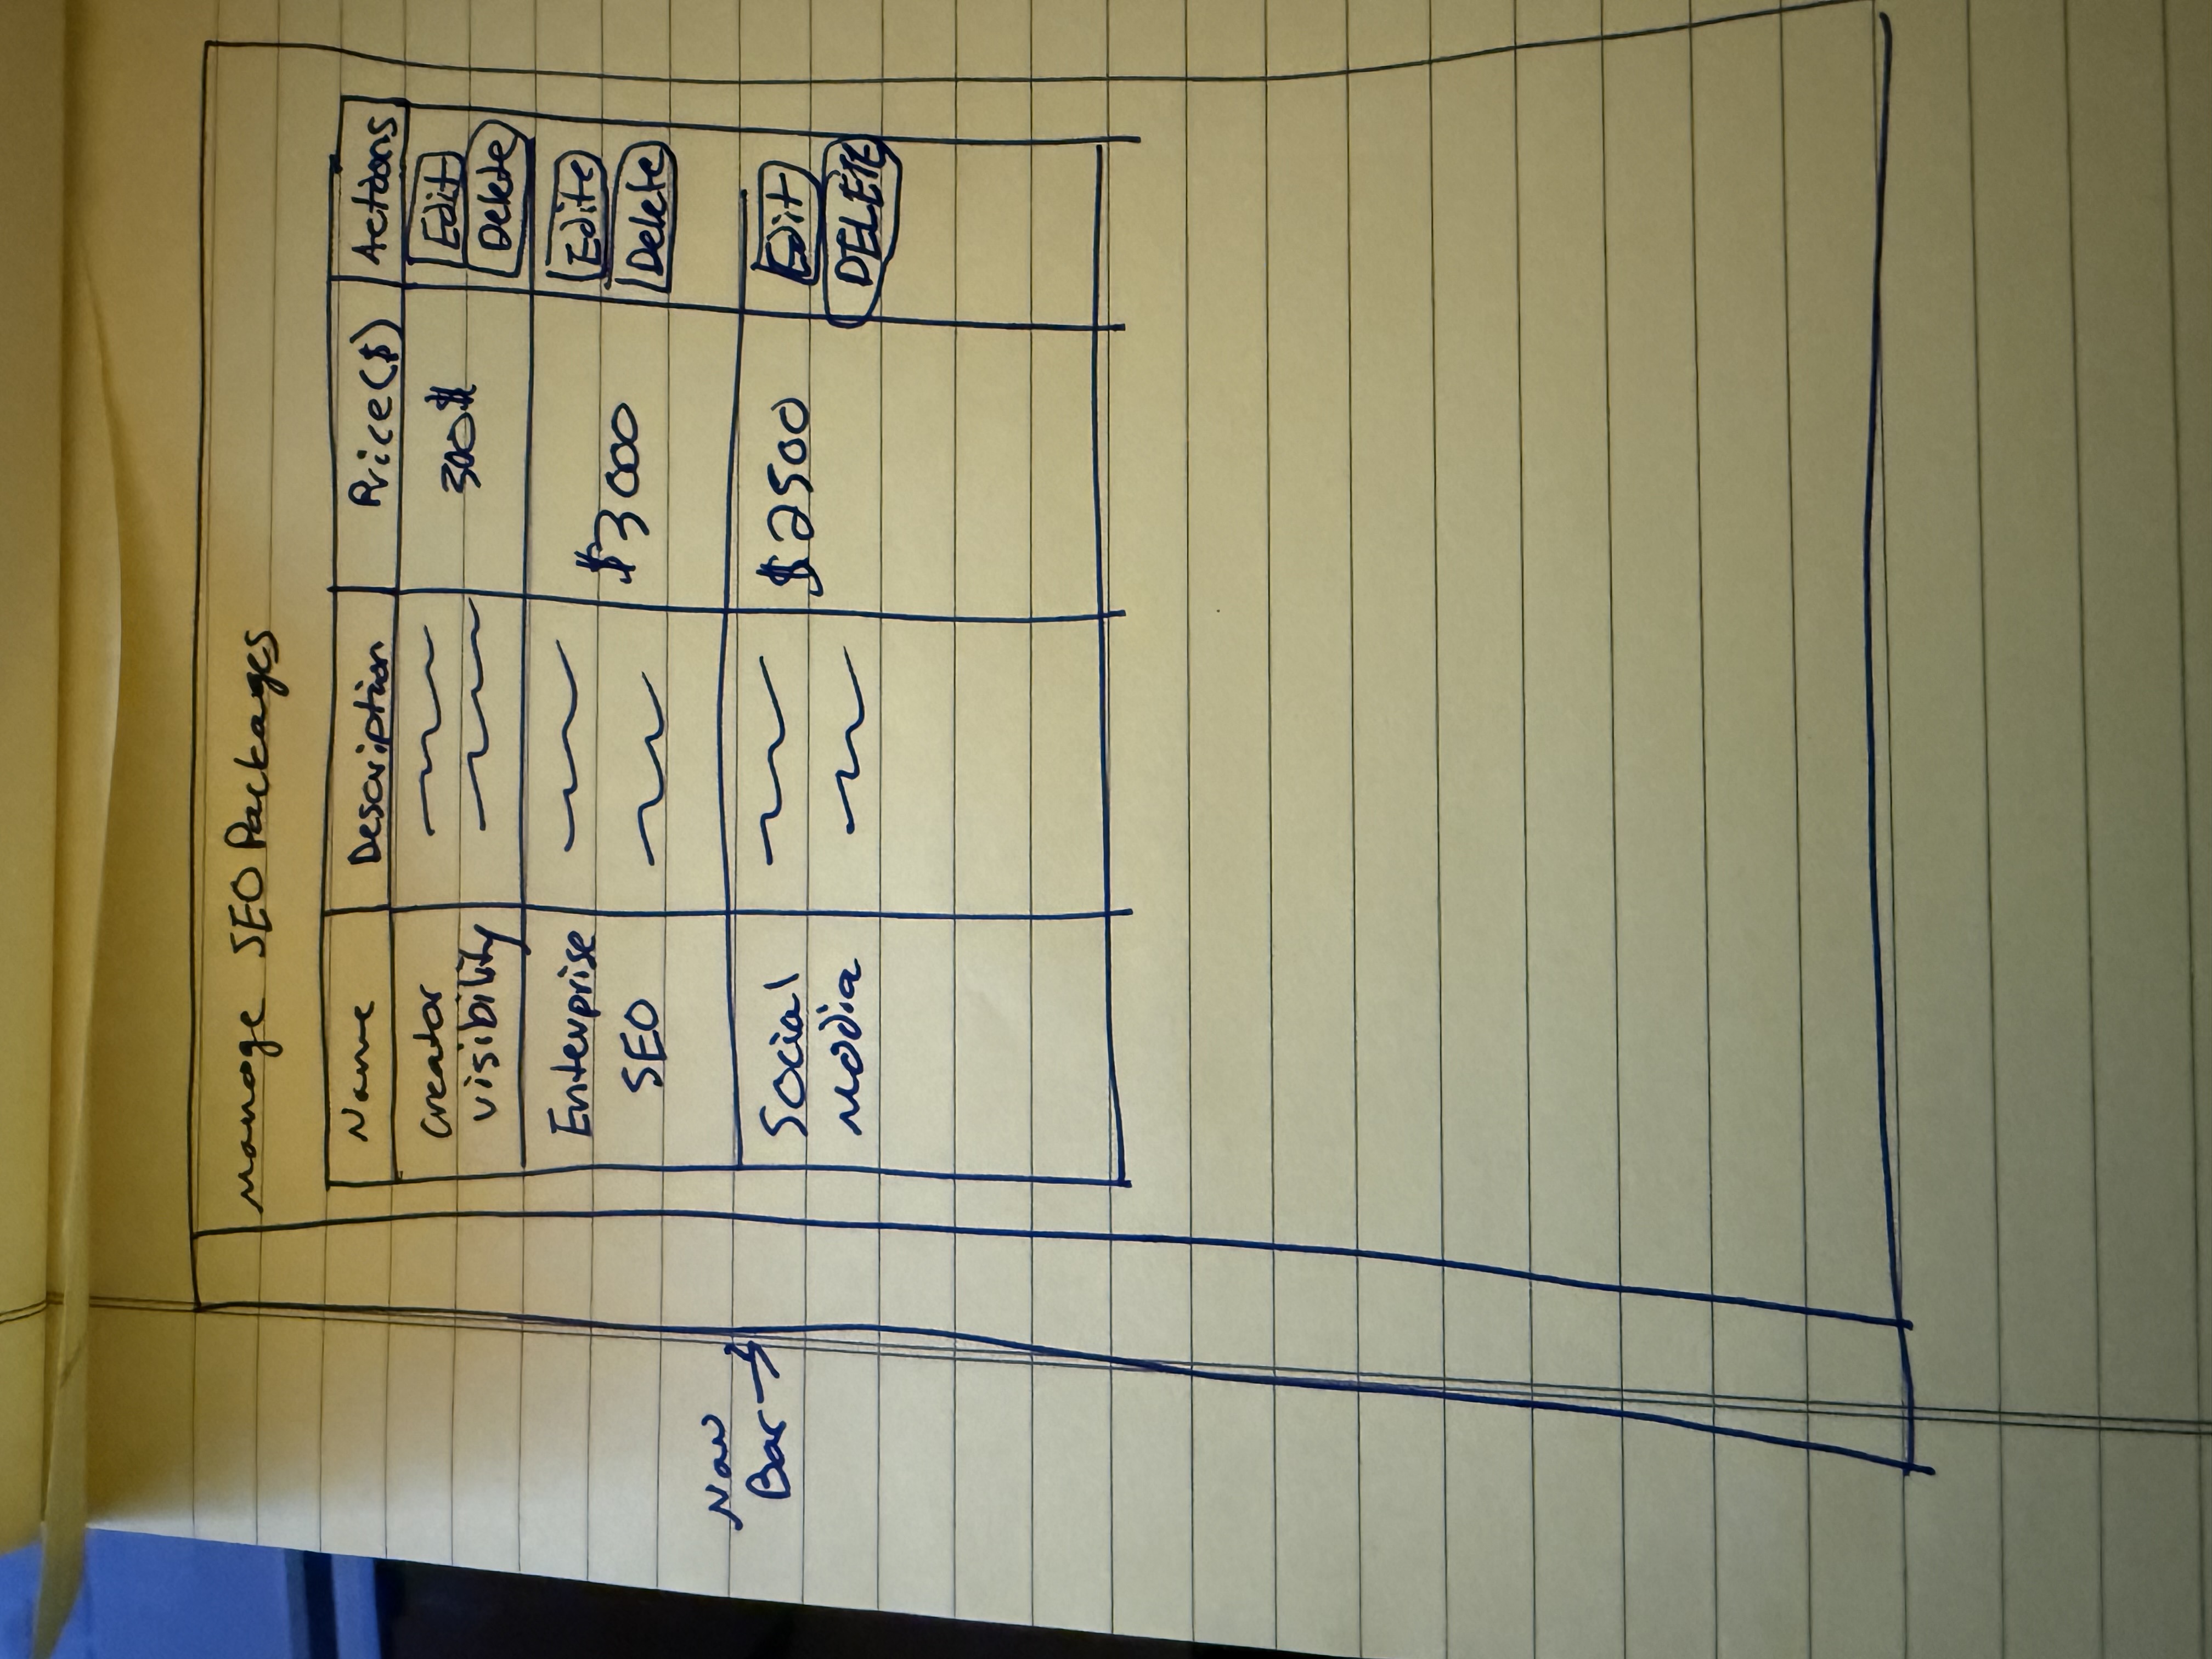 Manage SEO Packages
Name Description Price($) Actions
Creator
visibility
300$
Edit
Delete
Enterprise
SEO
$3000
Edite
Delete
Nav
Bar
Social
Media
$2500
Edit
DELETE